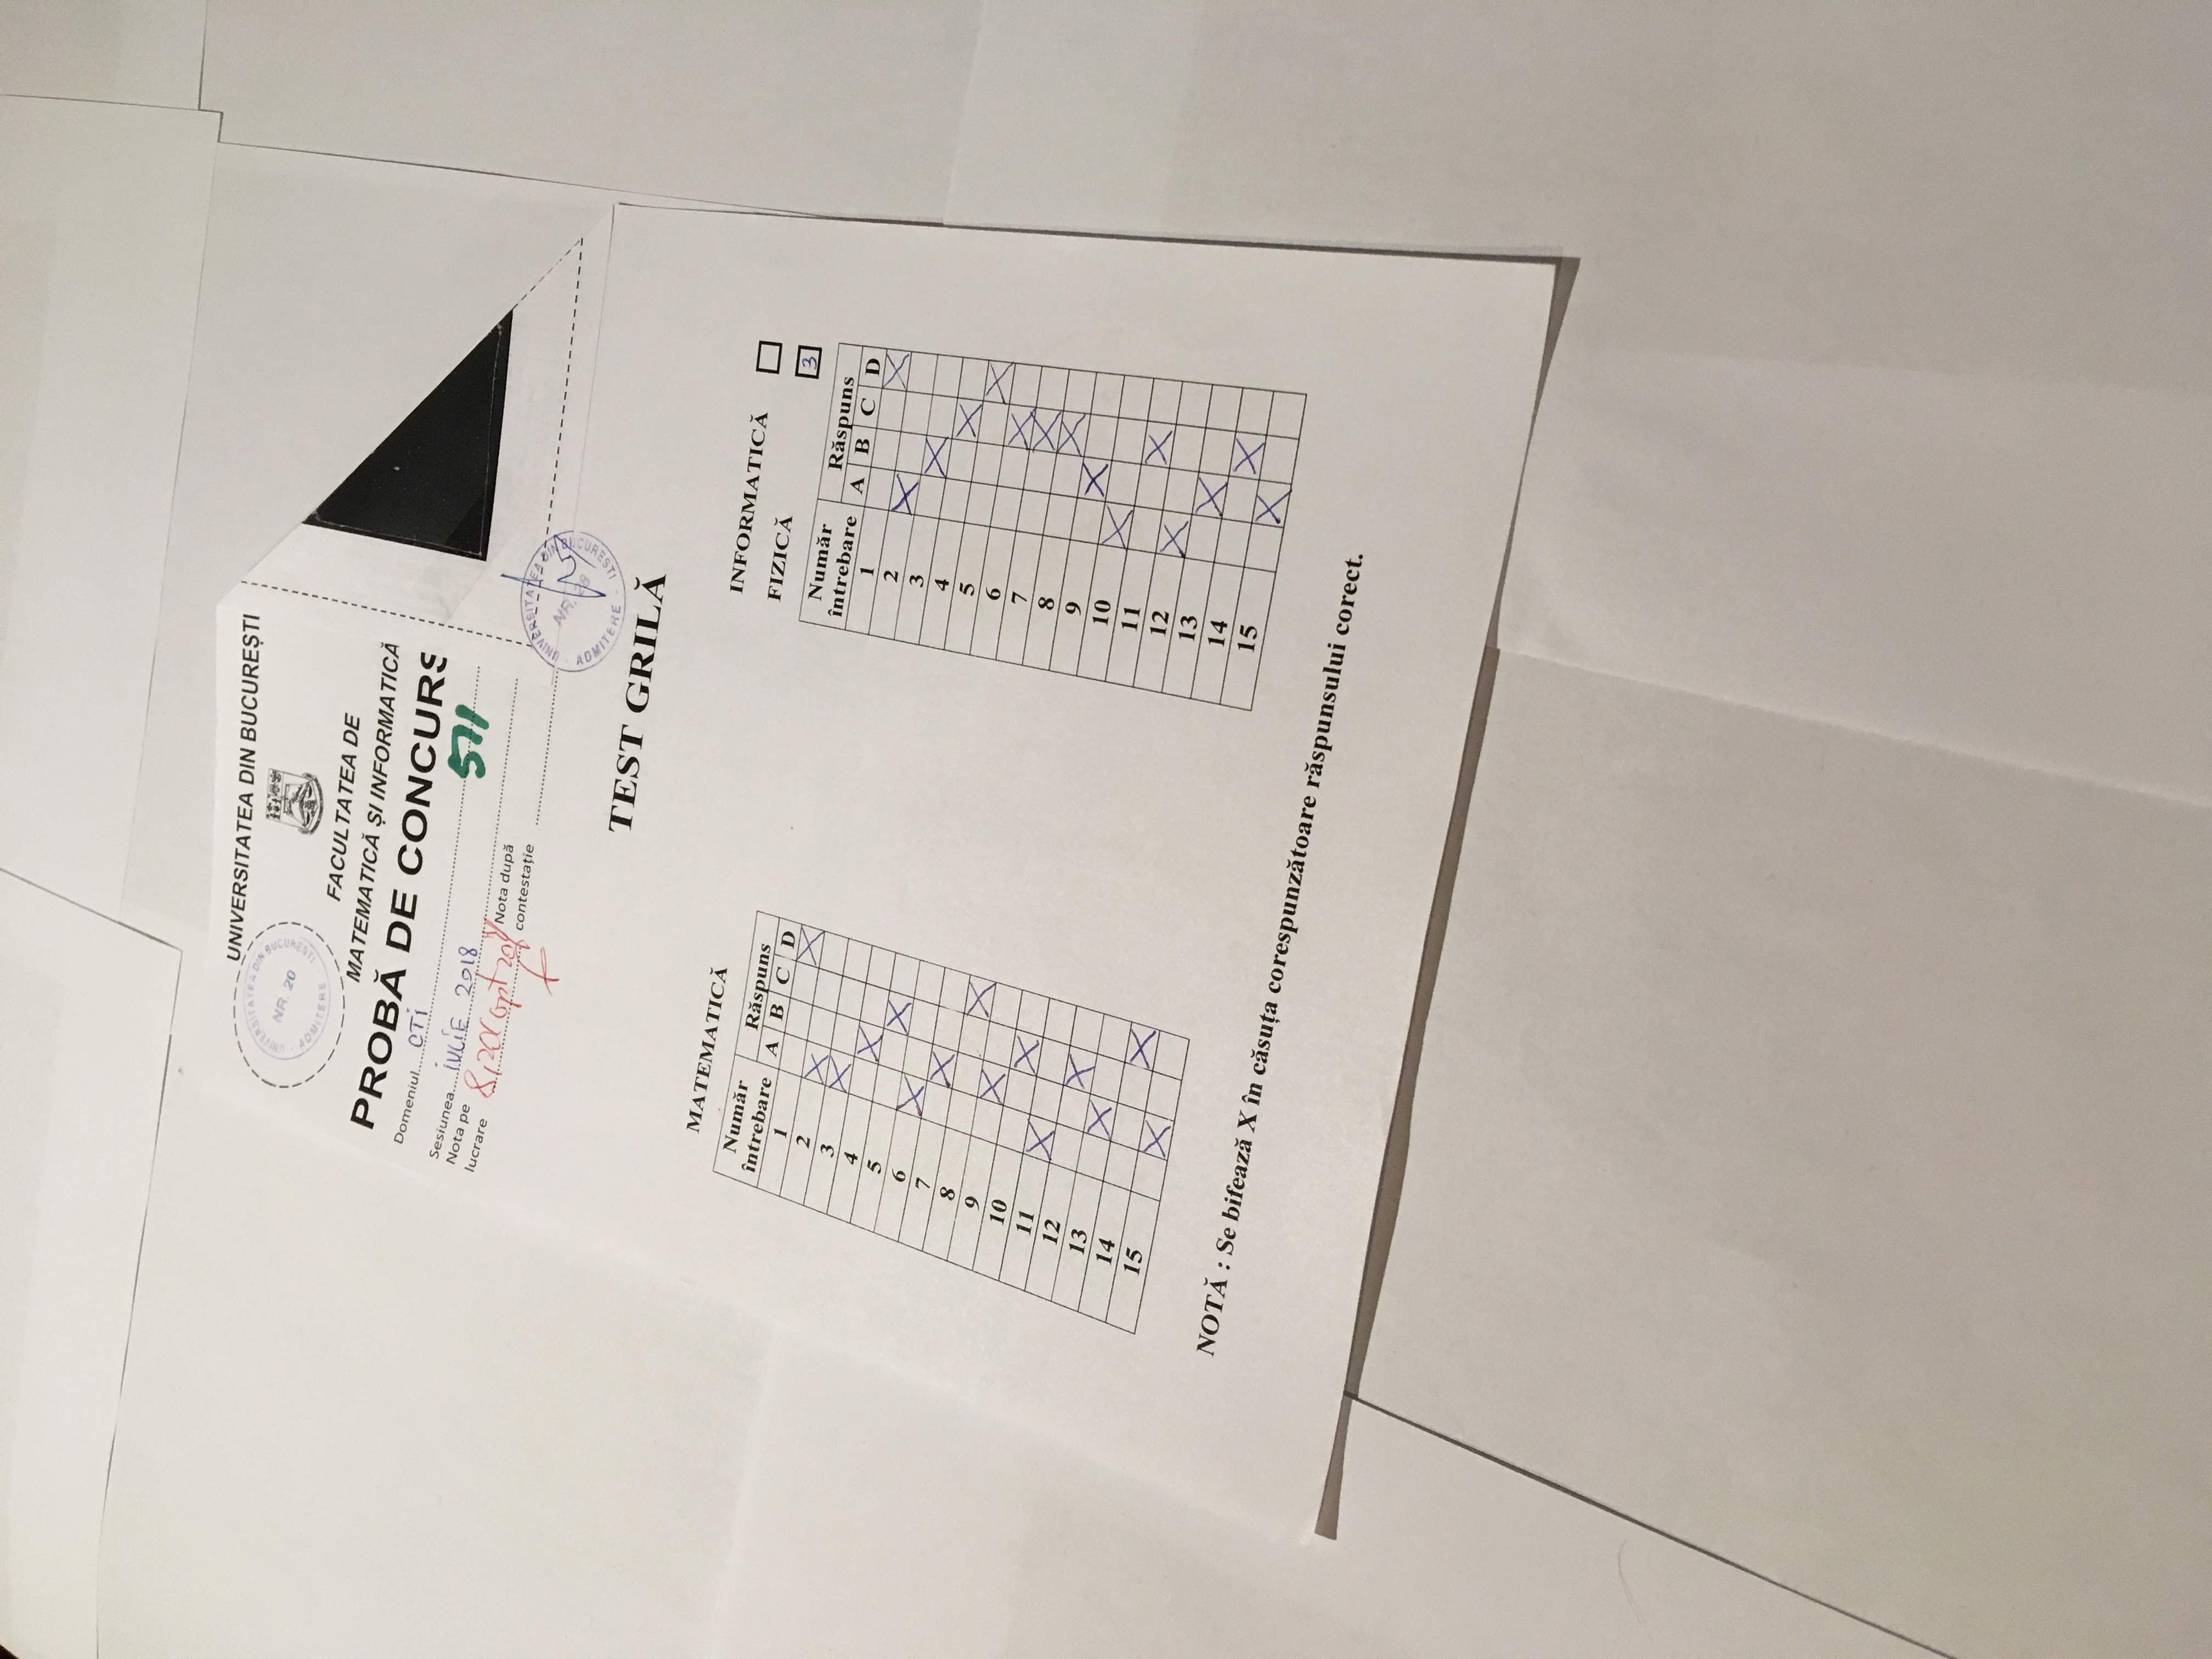 UNIVERSITATEA DIN BUCUREȘTI
UNIVERSITATEA DIN BUCUREȘTI
NR. 20
ADMITERE
FACULTATEA DE
MATEMATICĂ ȘI INFORMATICĂ
PROBĂ DE CONCURS
Domeniul.... CTI
571
Sesiunea.... IULIE 2018
Nota pe lucrare 8,20 (opt 20%)
Nota după contestație
UNIVERSITATEA DIN BUCUREȘTI
NR. 28
ADMITERE
TEST GRILĂ
MATEMATICĂ
Număr întrebare Răspuns
A B C D
1 X
2 X
3 X
4 X
5 X
6 X
7 X
8 X
9 X
10 X
11 X
12 X
13 X
14 X
15 X
INFORMATICĂ
FIZICĂ 3
Număr întrebare Răspuns
A B C D
1 X
2 X
3 X
4 X
5 X
6 X
7 X
8 X
9 X
10 X
11 X
12 X
13 X
14 X
15 X
NOTĂ : Se bifează X în căsuța corespunzătoare răspunsului corect.